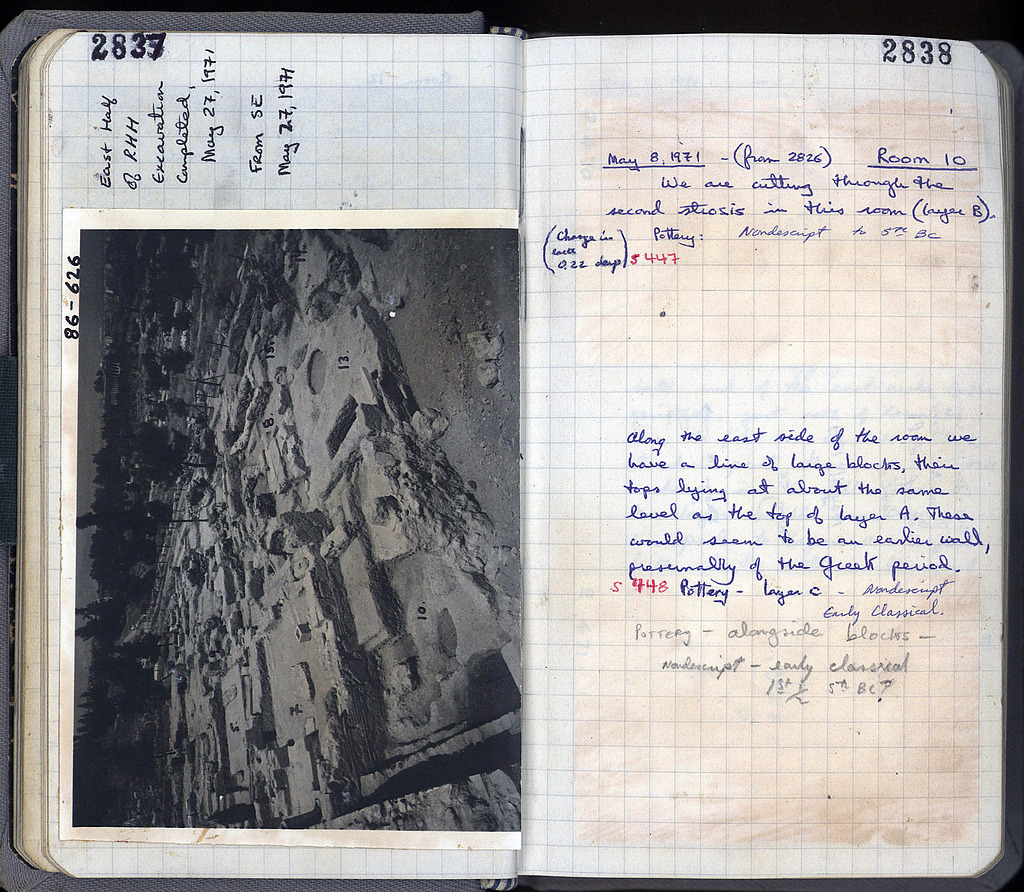 2837
East Half
of RHH
Excavation
Completed,
May 27, 1971
From SE
May 27, 1971
86-626
13
8
10
7
5
2838
May 8, 1971 - (from 2826) Room 10
We are cutting through the
second strosis in this room (layer B).
(Change in
0.22 deep)
Pottery: Nondescript to 5th BC
S 447
Along the east side of the room we
have a line of large blocks, their
tops lying at about the same
level as the top of layer A. These
would seem to be an earlier wall,
presumably of the Greek period.
S 448 Pottery - layer C - Nondescript
Early Classical.
Pottery - alongside blocks -
Nondescript - early classical
1st ½ 5th BC?